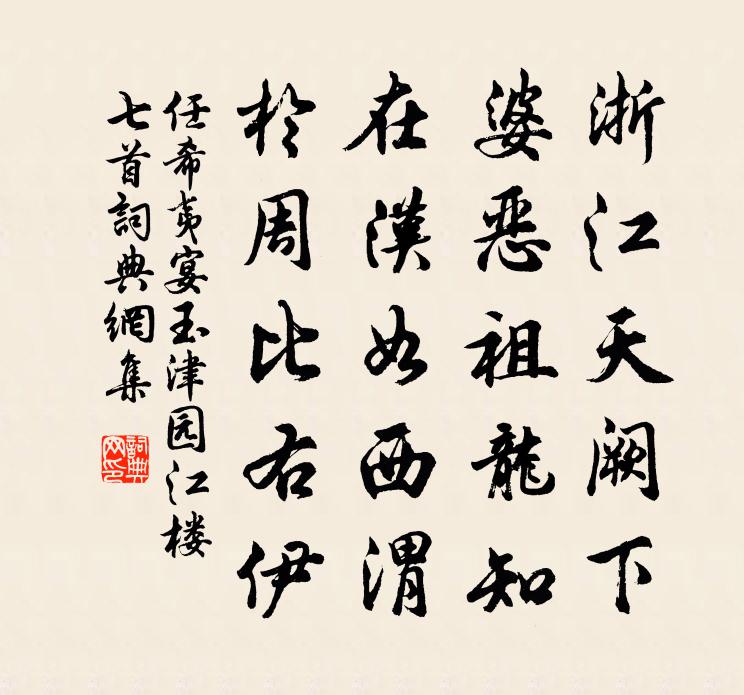 浙江天阙下
婆恶祖龍知
在漢如西渭
於周比右伊
任希夷宴玉津园江楼
七首詞典網集
詞典网印